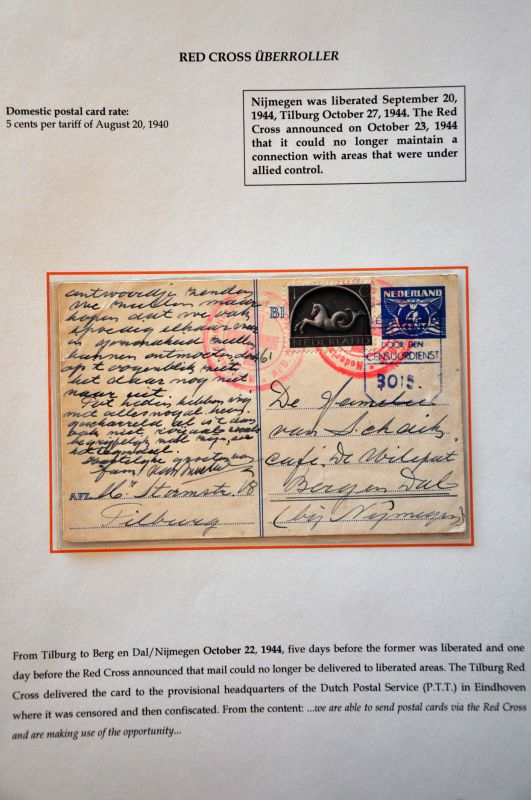 RED CROSS ÜBERROLLER
Domestic postal card rate:
5 cents per tariff of August 20, 1940
Nijmegen was liberated September 20,
1944, Tilburg October 27, 1944. The Red
Cross announced on October 23, 1944
that it could no longer maintain a
connection with areas that were under
allied control.
antwoordje zenden
we maar
hopen dat we ook
spoedig elkaar weer
in
kunnen ontmoeten
op 't oogenblik niet
het daar nog niet
naar uit.
hebben wij
met alles nogal
als 't dan
ook niet
begrijpelijk
Hartelijke groeten van
fam.
AFZ. Stormstr. 18
Tilburg
61
BR
NEDERLAND
NEDERLAND
CENT
DOOR DEN
CENSUURDIENST
3015
De Familie
van Schaik
café De Wilput
Berg en Dal
(bij Nijmegen)
From Tilburg to Berg en Dal/Nijmegen October 22, 1944, five days before the former was liberated and one
day before the Red Cross announced that mail could no longer be delivered to liberated areas. The Tilburg Red
Cross delivered the card to the provisional headquarters of the Dutch Postal Service (P.T.T.) in Eindhoven
where it was censored and then confiscated. From the content: ...we are able to send postal cards via the Red Cross
and are making use of the opportunity...